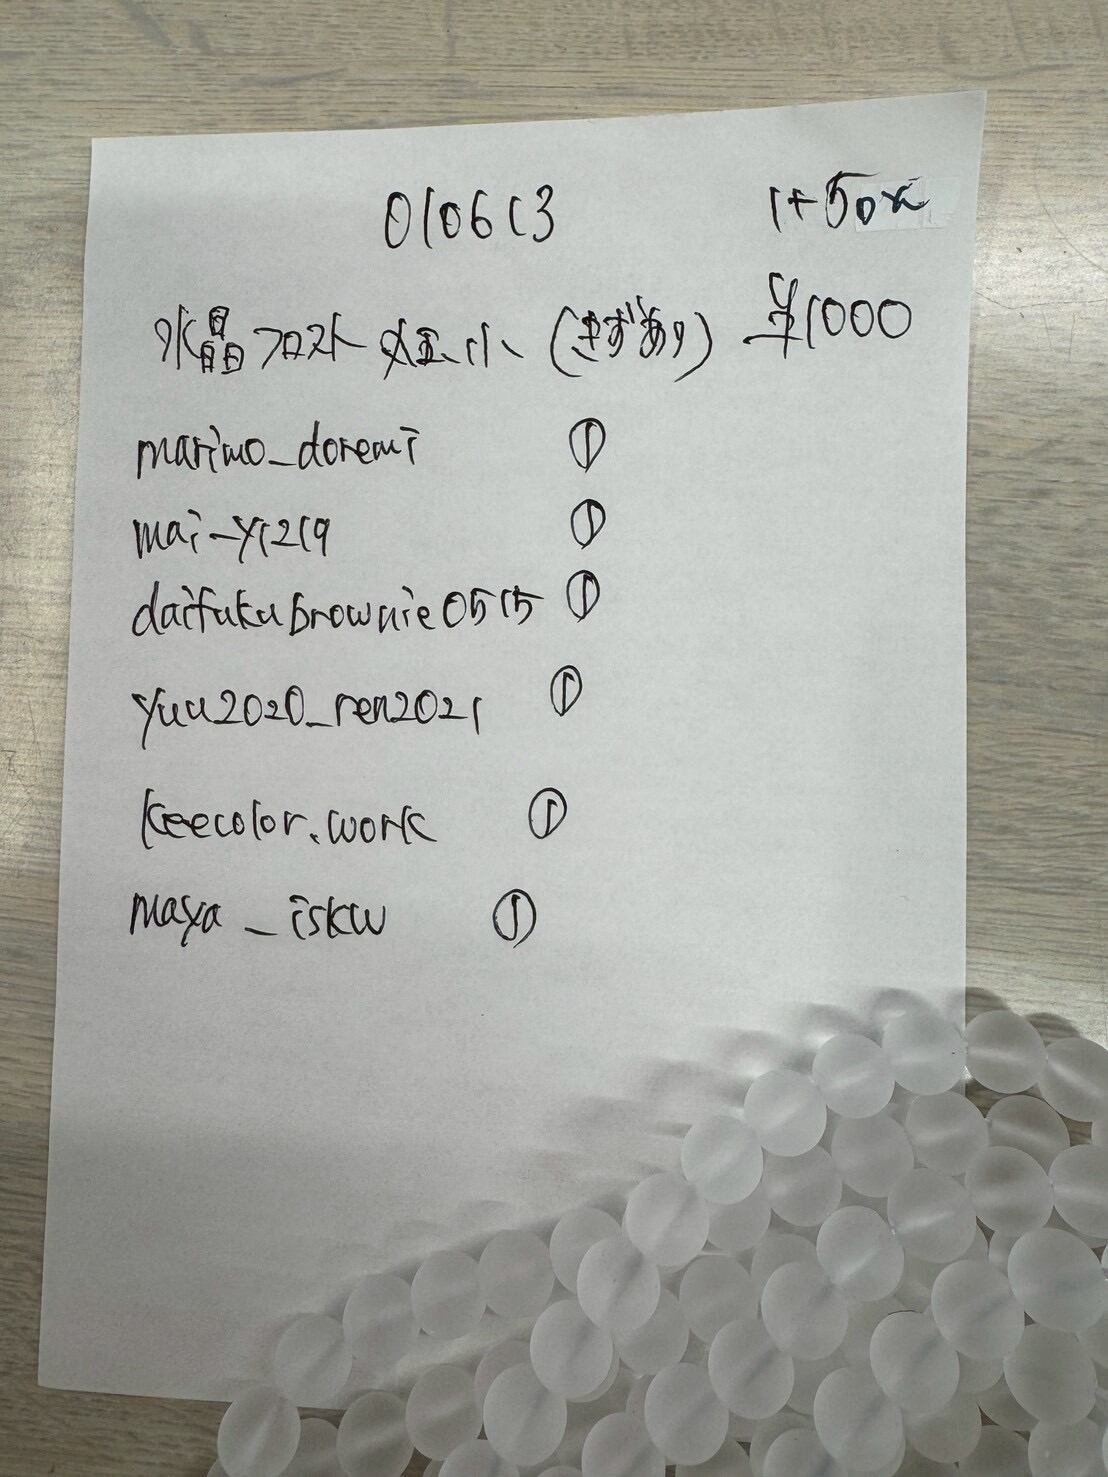 010613
水晶フロスト 小 (きずあり) ¥1000
marimo_doremi ①
mai_y1219 ①
daifukubrownie0515 ①
yuu2020_ren2021 ①
keecolor.work ①
maya_iskw ①